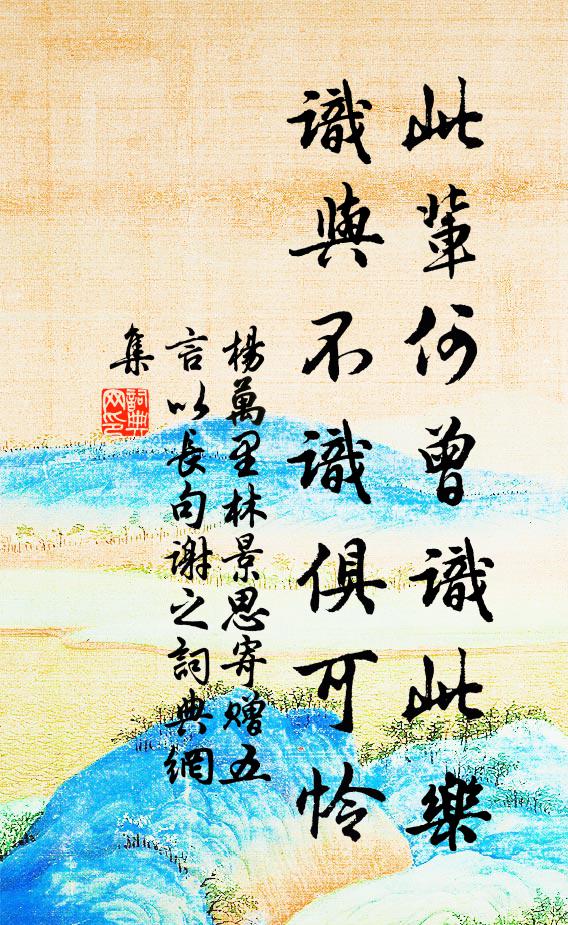 此輩何曾識此樂
識與不識俱可怜
楊萬里林景思寄赠五
言以長句謝之詞典網
集
詞典
网印